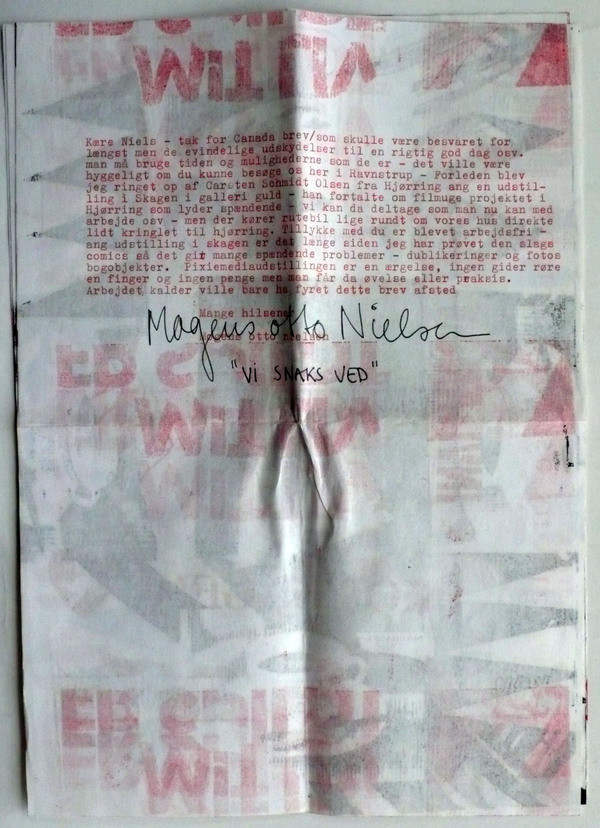 Kære Niels - tak for Canada brev/som skulle være besvaret for
længst men de evindelige udskydelser til en rigtig god dag osv.
man må bruge tiden og mulighederne som de er - det ville være
hyggeligt om du kunne besøge os her i Ravnstrup - Forleden blev
jeg ringet op af Carsten Schmidt Olsen fra Hjørring ang en udstil-
ling i Skagen i galleri guld - han fortalte om filmuge projektet i
Hjørring som lyder spændende - vi kan da deltage som man nu kan med
arbejde osv - men der kører rutebil lige rundt om vores hus direkte
lidt kringlet til hjørring. Tillykke med du er blevet arbejdsfri -
ang udstilling i skagen er det længe siden jeg har prøvet den slags
comics så det gir mange spændende problemer - dublikeringer og fotos
bogobjekter. Pixiemediaudstillingen er en ærgelse, ingen gider røre
en finger og ingen penge men man får da øvelse eller præksis.
Arbejdet kalder ville bare ha fyret dette brev afsted
Mange hilsener
Mogens otto Nielsen
Mogens otto nielsen
"Vi SNAKS VED"